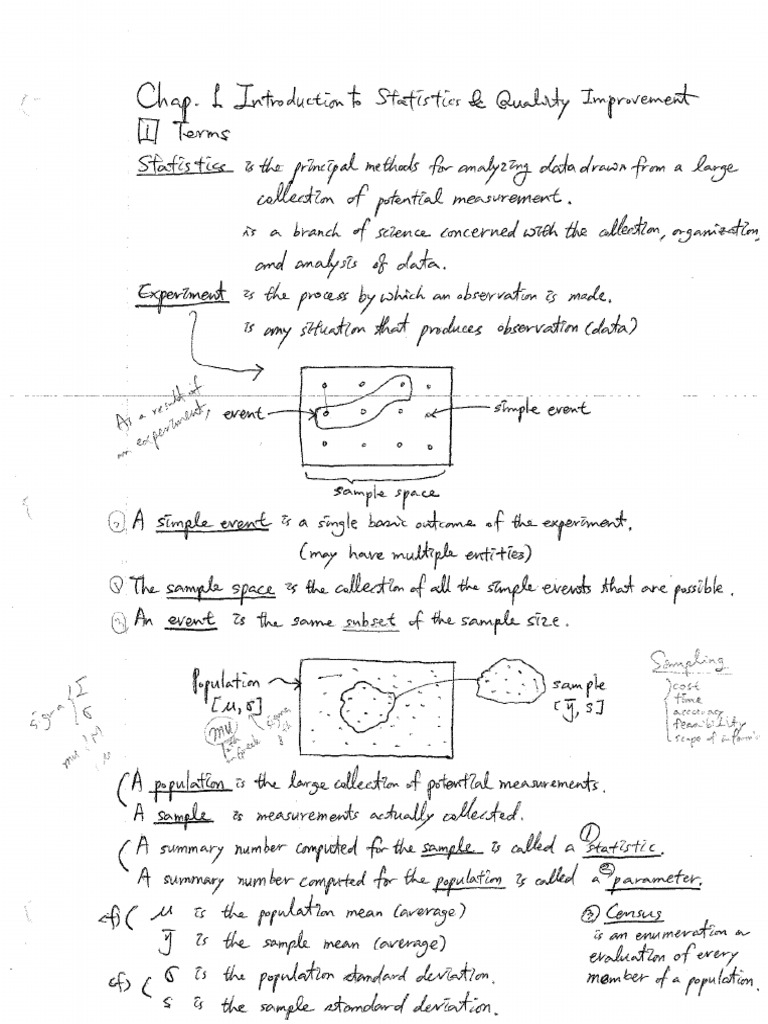 Chap. 1 Introduction to Statistics & Quality Improvement
1 Terms
Statistics is the principal methods for analyzing data drawn from a large
collection of potential measurement.
is a branch of science concerned with the collection, organization,
and analysis of data.
Experiment is the process by which an observation is made.
is any situation that produces observation (data)
As a result of
an experiment,
event
simple event
sample space
② A simple event is a single basic outcome of the experiment.
(may have multiple entities)
① The sample space is the collection of all the simple events that are possible.
③ An event is the same subset of the sample size.
Population
[μ, σ]
sample
[ȳ, s]
Sampling
cost
time
accuracy
feasibility
scope of
sigma Σ
σ
mu
sigma
mu
A population is the large collection of potential measurements.
A sample is measurements actually collected.
A summary number computed for the sample is called a ① statistic.
A summary number computed for the population is called a ② parameter.
cf) μ is the population mean (average)
ȳ is the sample mean (average)
cf) σ is the population standard deviation.
s is the sample standard deviation.
③ Census
is an enumeration or
evaluation of every
member of a population.